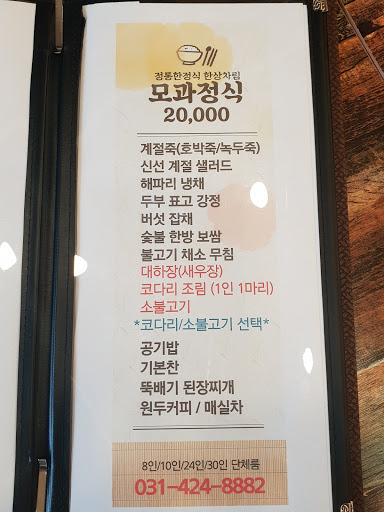 정통한정식 한상차림
모과정식
20,000
계절죽(호박죽/녹두죽)
신선 계절 샐러드
해파리 냉채
두부 표고 강정
버섯 잡채
숯불 한방 보쌈
불고기 채소 무침
대하장(새우장)
코다리 조림 (1인 1마리)
소불고기
*코다리/소불고기 선택*
공기밥
기본찬
뚝배기 된장찌개
원두커피 / 매실차
8인/10인/24인/30인 단체룸
031-424-8882